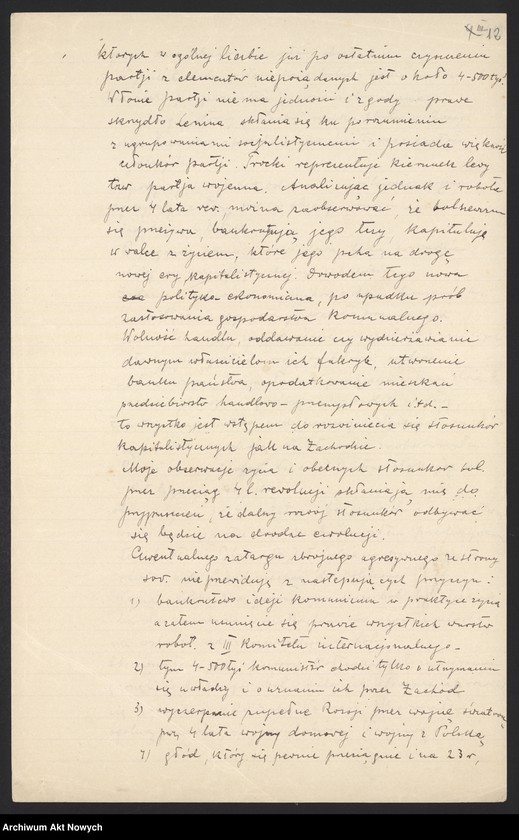 III 12
których w ogólnej liczbie już po ostatnim czyszczeniu
partji z elementów niepożądanych jest około 4-500 tys.
Włonie partji nie ma jedności i zgody prawe
skrzydło Lenina skłania się ku porozumieniu
z ugrupowaniami socjalistycznemi i posiada większość
członków partji. Trocki reprezentuje kierunek lewy
tzw. partja wojenna. Analizując jednak i robotę
przez 4 lata rew. można zaobserwować, że bolszewizm
się przeżywa bankrutują jego tezy, kapitulują
w walce z życiem, które jego pcha na drogę
nowej ery kapitalistycznej. Dowodem tego nowa
polityka ekonomiczna, po upadku prób
zastosowania gospodarstwa komunalnego.
Wolność handlu, oddawanie czy wydzierżawianie
dawnym właścicielom ich fabryk, utworzenie
banku państwa, opodatkowanie mieszkań
przedsiębiorstw handlowo-przemysłowych itd. -
to wszystko jest wstępem do rozwinięcia się stosunków
kapitalistycznych jak na Zachodzie.
Moje obserwacje życia i obecnych stosunków sow.
przez przeciąg 4 l. rewolucji skłaniają mię do
przypuszczeń, że dalszy rozwój stosunków odbywać
się będzie na drodze ewolucji.
Ewentualnego zatargu zbrojnego agresywnego ze strony
sow. nie przewiduję z następujących przyczyn:
1) bankructwo ideji komunizmu w praktyce życia
a zatem usunięcie się prawie wszystkich warstw
robot. z III Komitetu internacjonalnego -
2) tym 4-500 tys. komunistów chodzi tylko o utrzymanie
się u władzy i o uznanie ich przez Zachód
3) wyczerpanie zupełne Rosji przez wojnę światową
przez 4 lata wojny domowej i wojny z Polską,
4) głód, który się pewnie przeciągnie i na 23 r,
Archiwum Akt Nowych